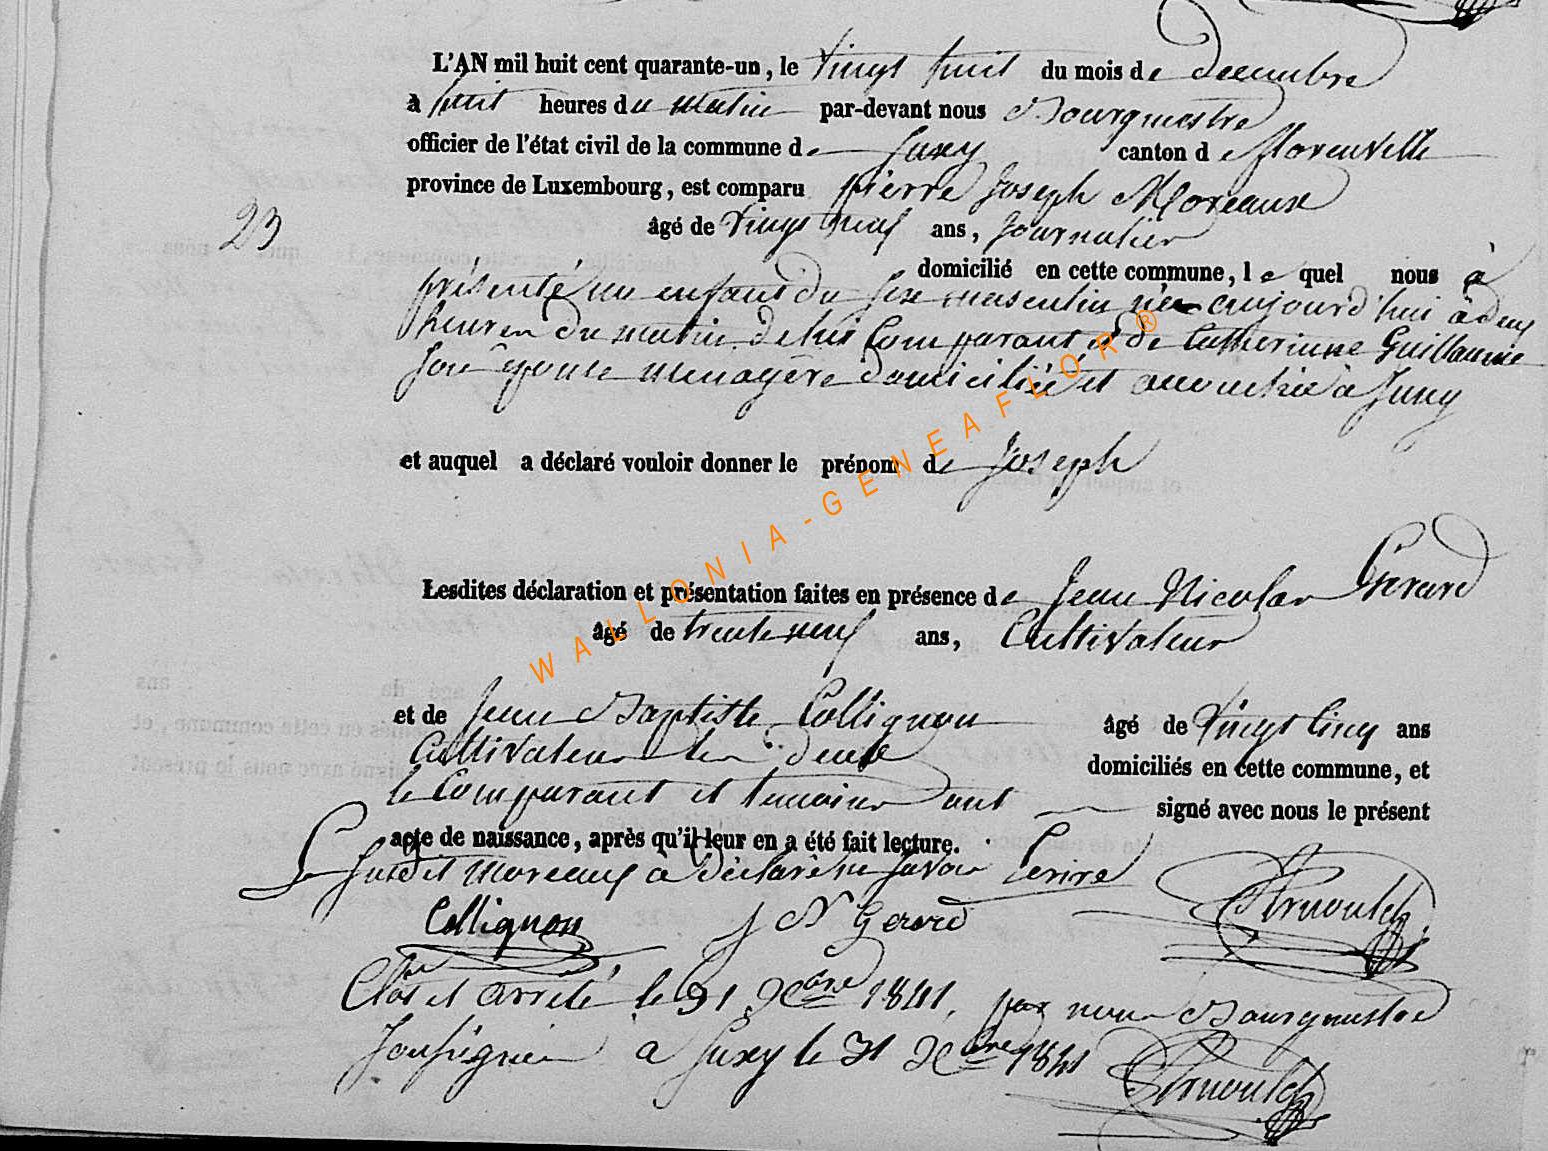 L'AN mil huit cent quarante-un, le vingt huit du mois de decembre
à huit heures du matin par-devant nous Bourgmestre
officier de l'état civil de la commune de Juxy canton de florenville
province de Luxembourg, est comparu pierre Joseph Moreaux
23
âgé de vingt neuf ans, Journalier
domicilié en cette commune, lequel nous à
présenté un enfant du sexe masculin née aujourd'hui à deux
heures du matin de lui Comparant et de Catherinne Guillaume
son épouse menagère domiciliée et accouchée à Juxy
et auquel a déclaré vouloir donner le prénom de Joseph
Lesdites déclaration et présentation faites en présence de Jean Nicolas Gerard
âgé de trente neuf ans, Cultivateur
et de Jean Baptiste Collignon âgé de vingt Cinq ans
Cultivateur les deux domiciliés en cette commune, et
le Comparant et temoins ont signé avec nous le présent
acte de naissance, après qu'il leur en a été fait lecture.
Le susdit Moreaux à déclaré ne savoir Ecrire
Collignon J N Gerard Arnould
Clos et arreté le 31 Xbre 1841, par nous Bourgmestre
soussignés à Juxy le 31 Xbre 1841
Arnould
WALLONIA-GENEAFLOR®